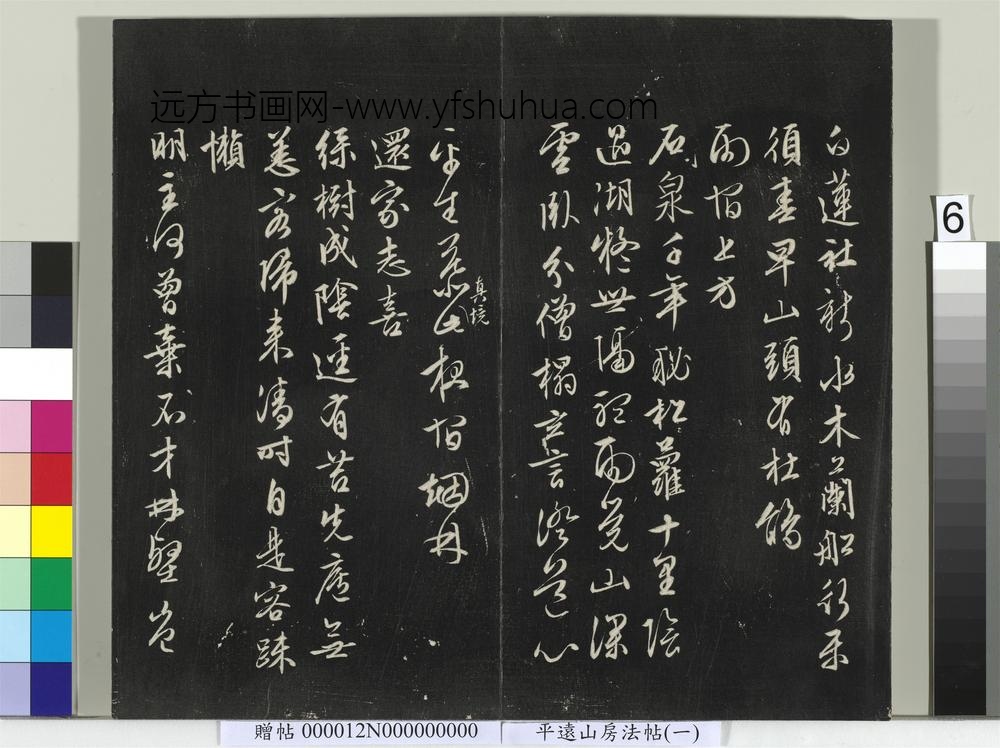 远方书画网-www.yfshuhua.com
白蓮社新水木蘭船行樂
須春早山頭有杜鵑
雨宿上方
石泉千年秘松蘿十里陰
過湖疑世隔聽雨覺山深
雲臥分僧榻玄言證道心
平生慕真境此夜宿烟林
還家志喜
綠樹成陰逕有苔先廬無
恙客歸來清時自是容疎
懶
明主何曾棄不才林壑豈
6
贈帖 000012N000000000
平遠山房法帖(一)